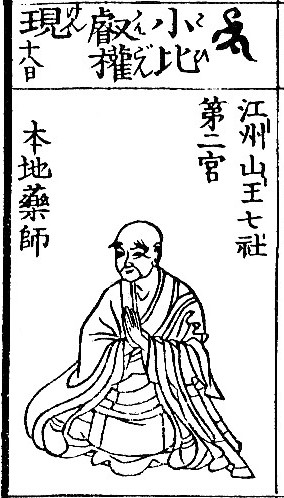 小比
叡權
現
十八日
江州山王七社
第二宮
本地藥師